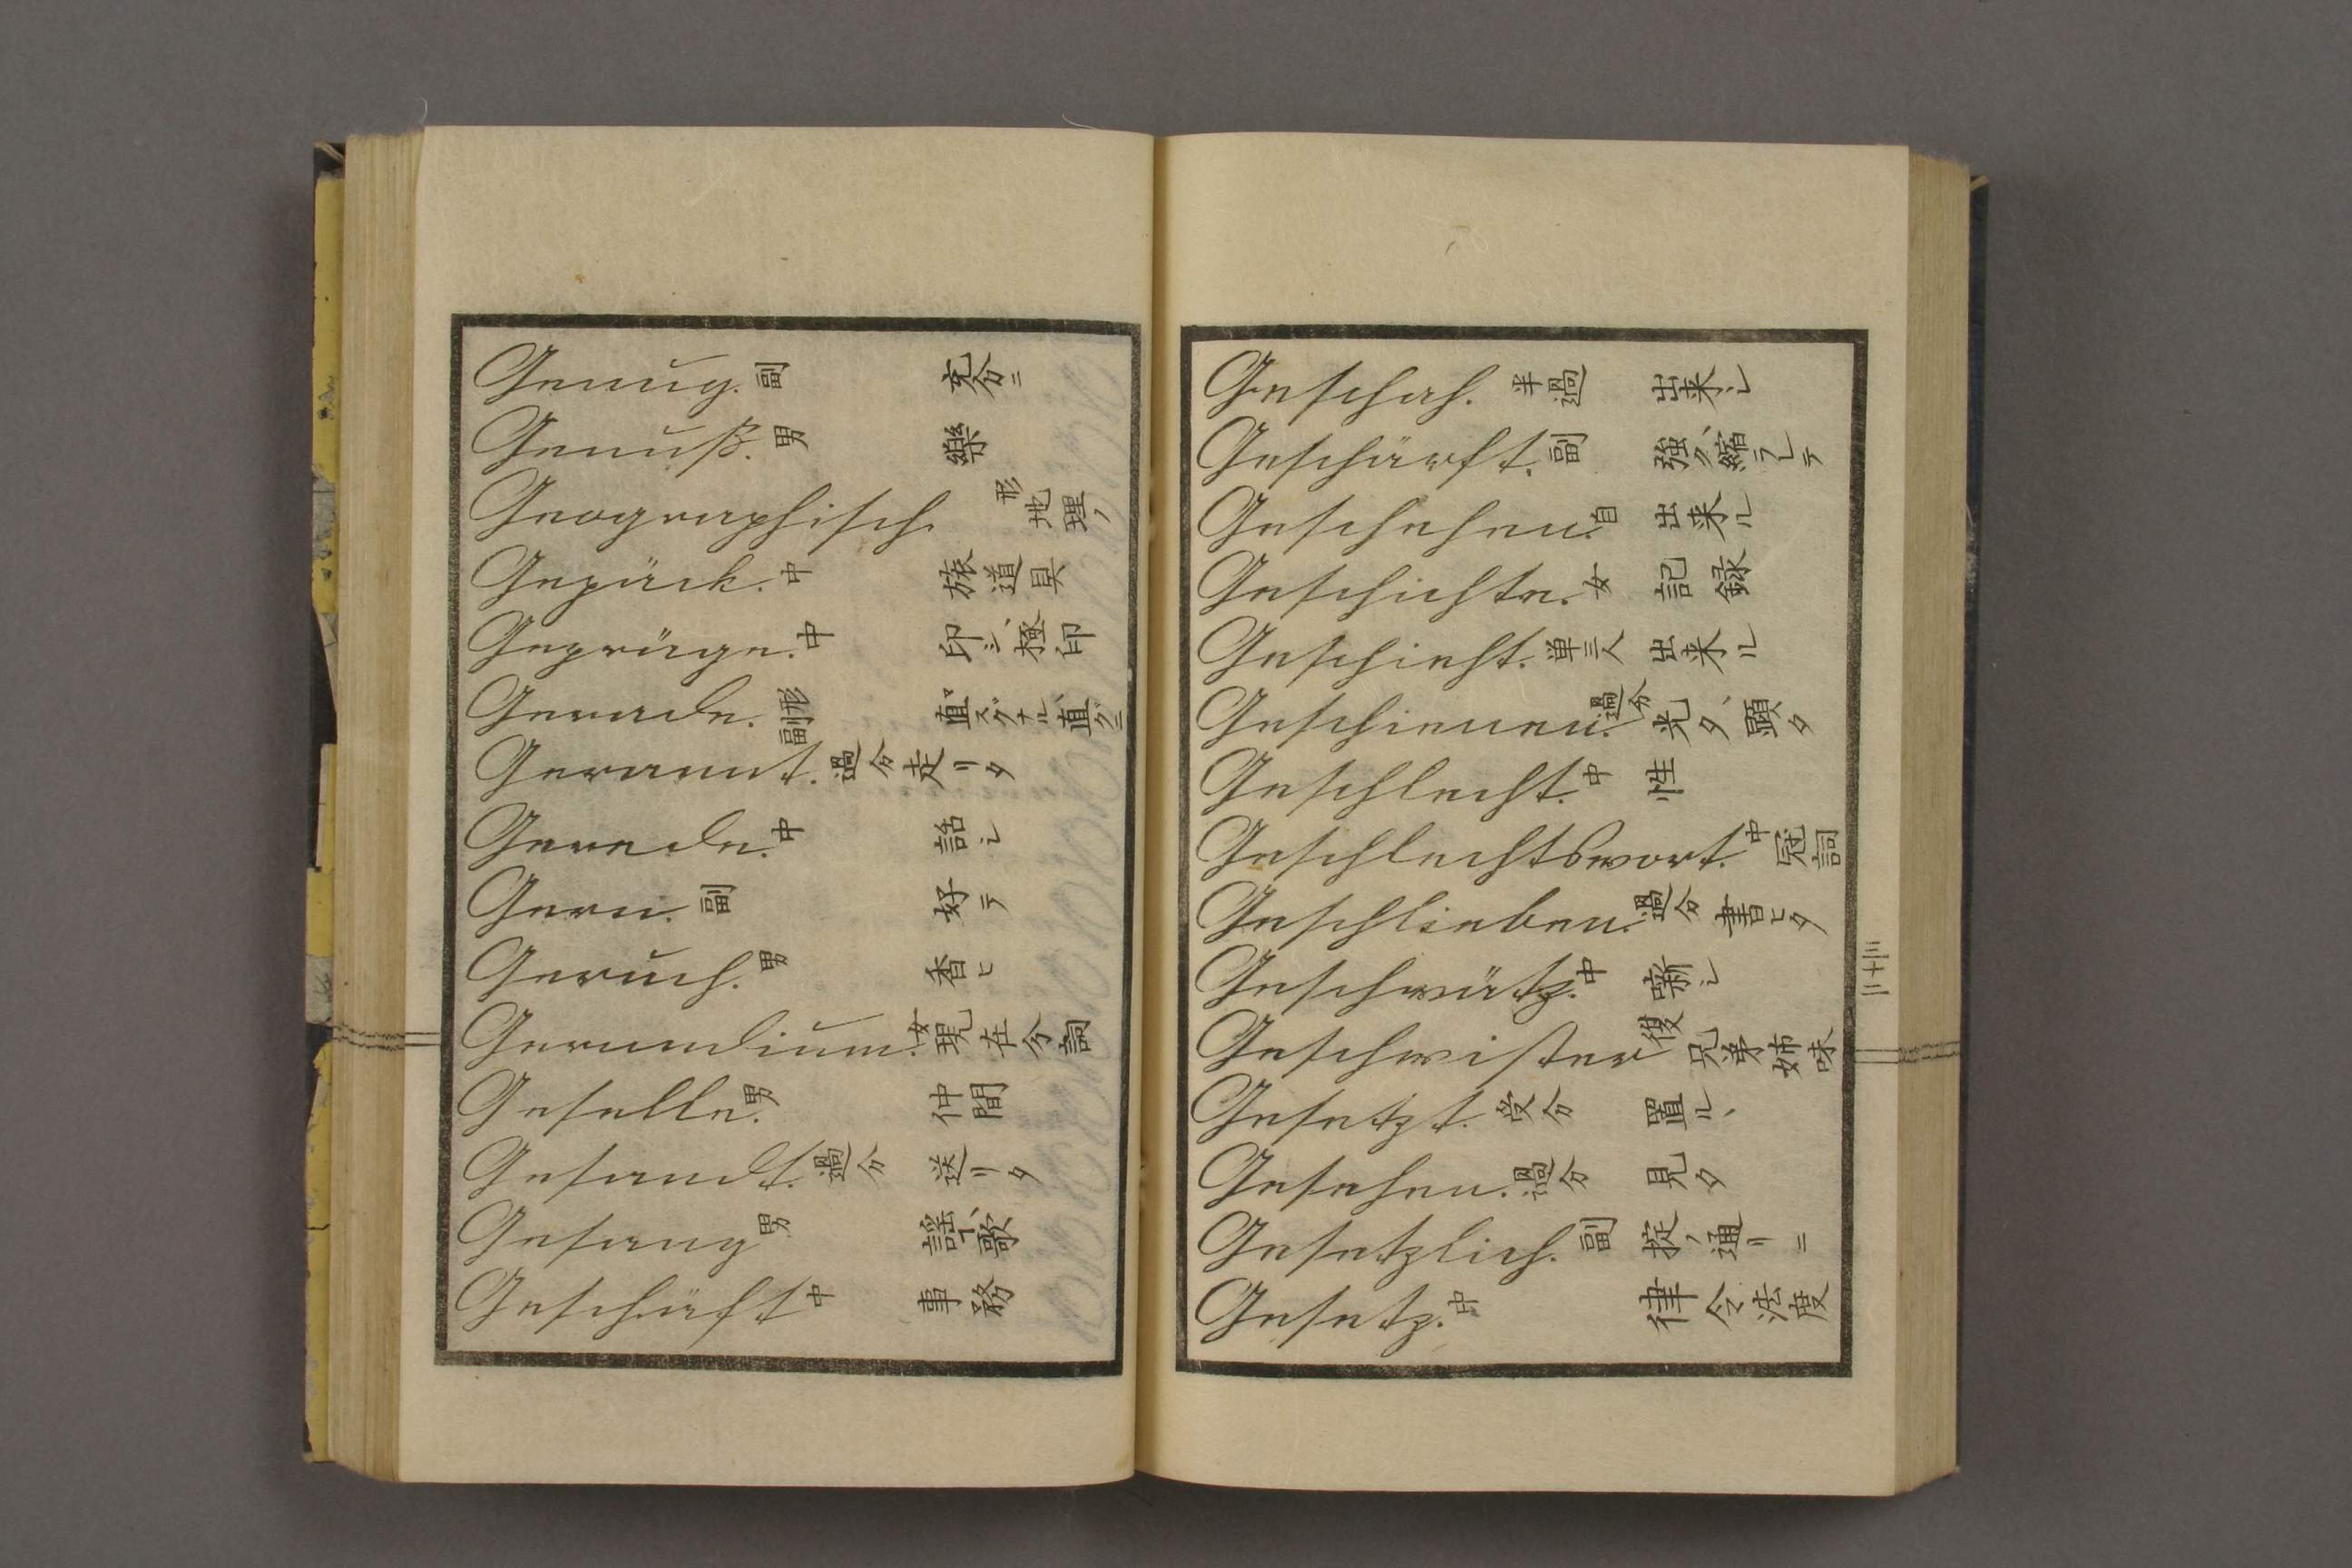 Genug. 副 充分ニ
Genuß. 男 樂
Geographisch. 形 地理ノ
Gepäck. 中 旅道具
Gepräge. 中 印シ、極印
Gerade. 形副 直スグナル、直グニ
Gerannt. 過分 走リタ
Gerede. 中 話シ
Gern. 副 好テ
Geruch. 男 香ヒ
Gerundium. 女 現在分詞
Geselle. 男 仲間
Gesandt. 過分 送リタ
Gesang 男 謡、歌
Geschäft 中 事務
Geschah. 半過 出来シ
Geschärft. 副 強ク、縮ラレテ
Geschehen. 自 出来ル
Geschichte. 女 記録
Geschieht. 単三人 出来ル
Geschienen. 過分 光タ、顕タ
Geschlecht. 中 性
Geschlechtswort. 中 冠詞
Geschlieben. 過分 書ヒタ
Geschwätz. 中 噺シ
Geschwister 復 兄弟姉妹
Gesetzt. 受分 置ル、
Gesehen. 過分 見タ
Gesetzlich. 副 掟ノ通リニ
Gesetz. 中 律令法度
二十三